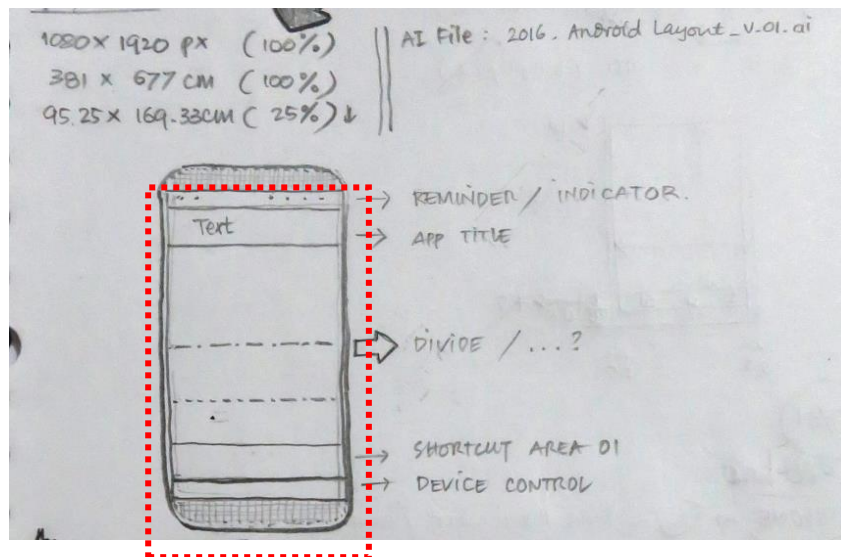 1080 x 1920 px (100%)
381 x 677 cm (100%)
95.25 x 169.33cm (25%) ↓
AI File : 2016. Android Layout_V.01.ai
→ REMINDER / INDICATOR.
Text
→ APP TITLE
⇒ DIVIDE / ...?
→ SHORTCUT AREA 01
→ DEVICE CONTROL